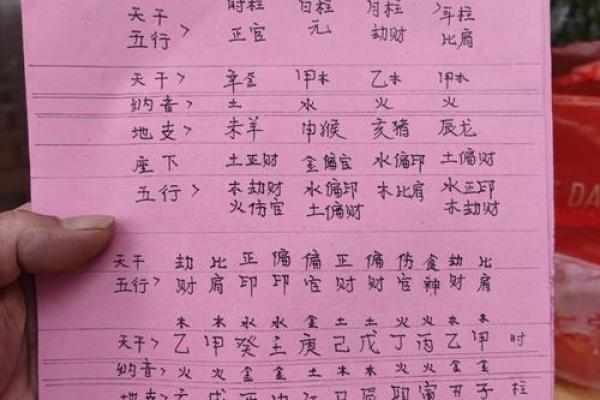 天干 时柱 日柱 月柱 年柱
五行> 正官 元 劫财 比肩
天干> 辛金 甲木 乙木 甲木
纳音> 土 水 火 火
地支> 未羊 申猴 亥猪 辰龙
座下 土正财 金偏官 水偏印 土偏财
五行> 木劫财 水偏印 木比肩 水正印
火伤官 土偏财 木劫财
天干 劫 比 正 偏 偏 正 偏 伤 食 劫 比
五行> 财 肩 印 印 官 财 财 官 神 财 肩
木 木 水 水 金 土 土 火 火 木 木
天干> 乙 甲 癸 壬 庚 己 戊 丁 丙 乙 甲 时
纳音> 火 火 金 金 土 土 火 火 火 金 金
地支> 亥 戌 酉 巳 辰 卯 寅 丑 子 柱
DA